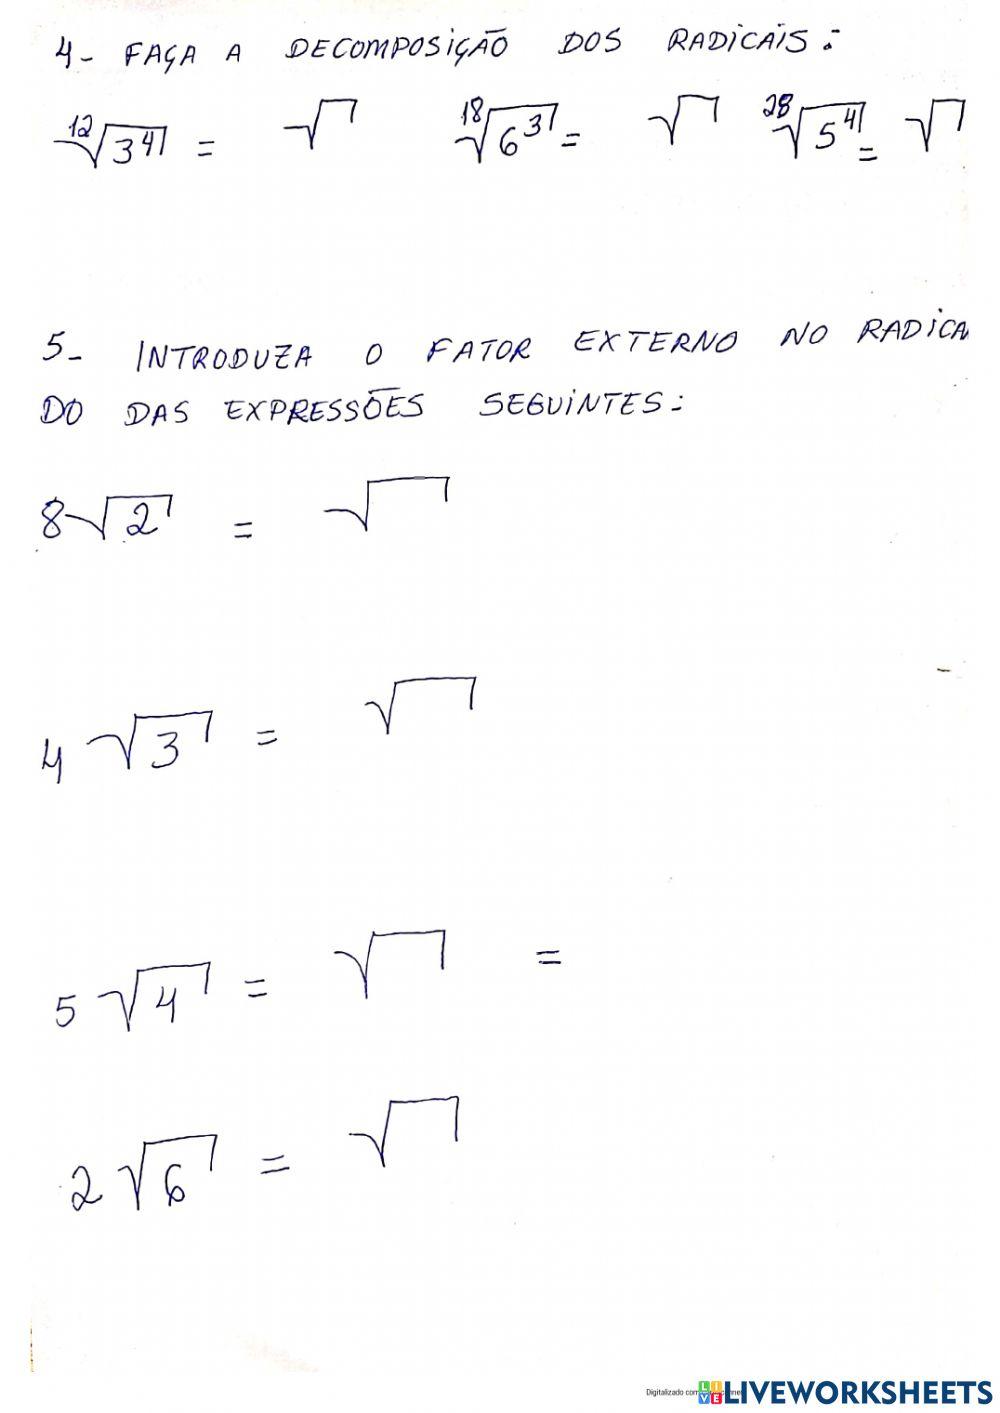 4- FAÇA A DECOMPOSIÇÃO DOS RADICAIS:
¹²√3⁴ = √ ¹⁸√6³ = √ ²⁸√5⁴ = √
5- INTRODUZA O FATOR EXTERNO NO RADICA
DO DAS EXPRESSÕES SEGUINTES:
8√2 = √
4√3 = √
5√4 = √ =
2√6 = √
Digitalizado com
LIVEWORKSHEETS